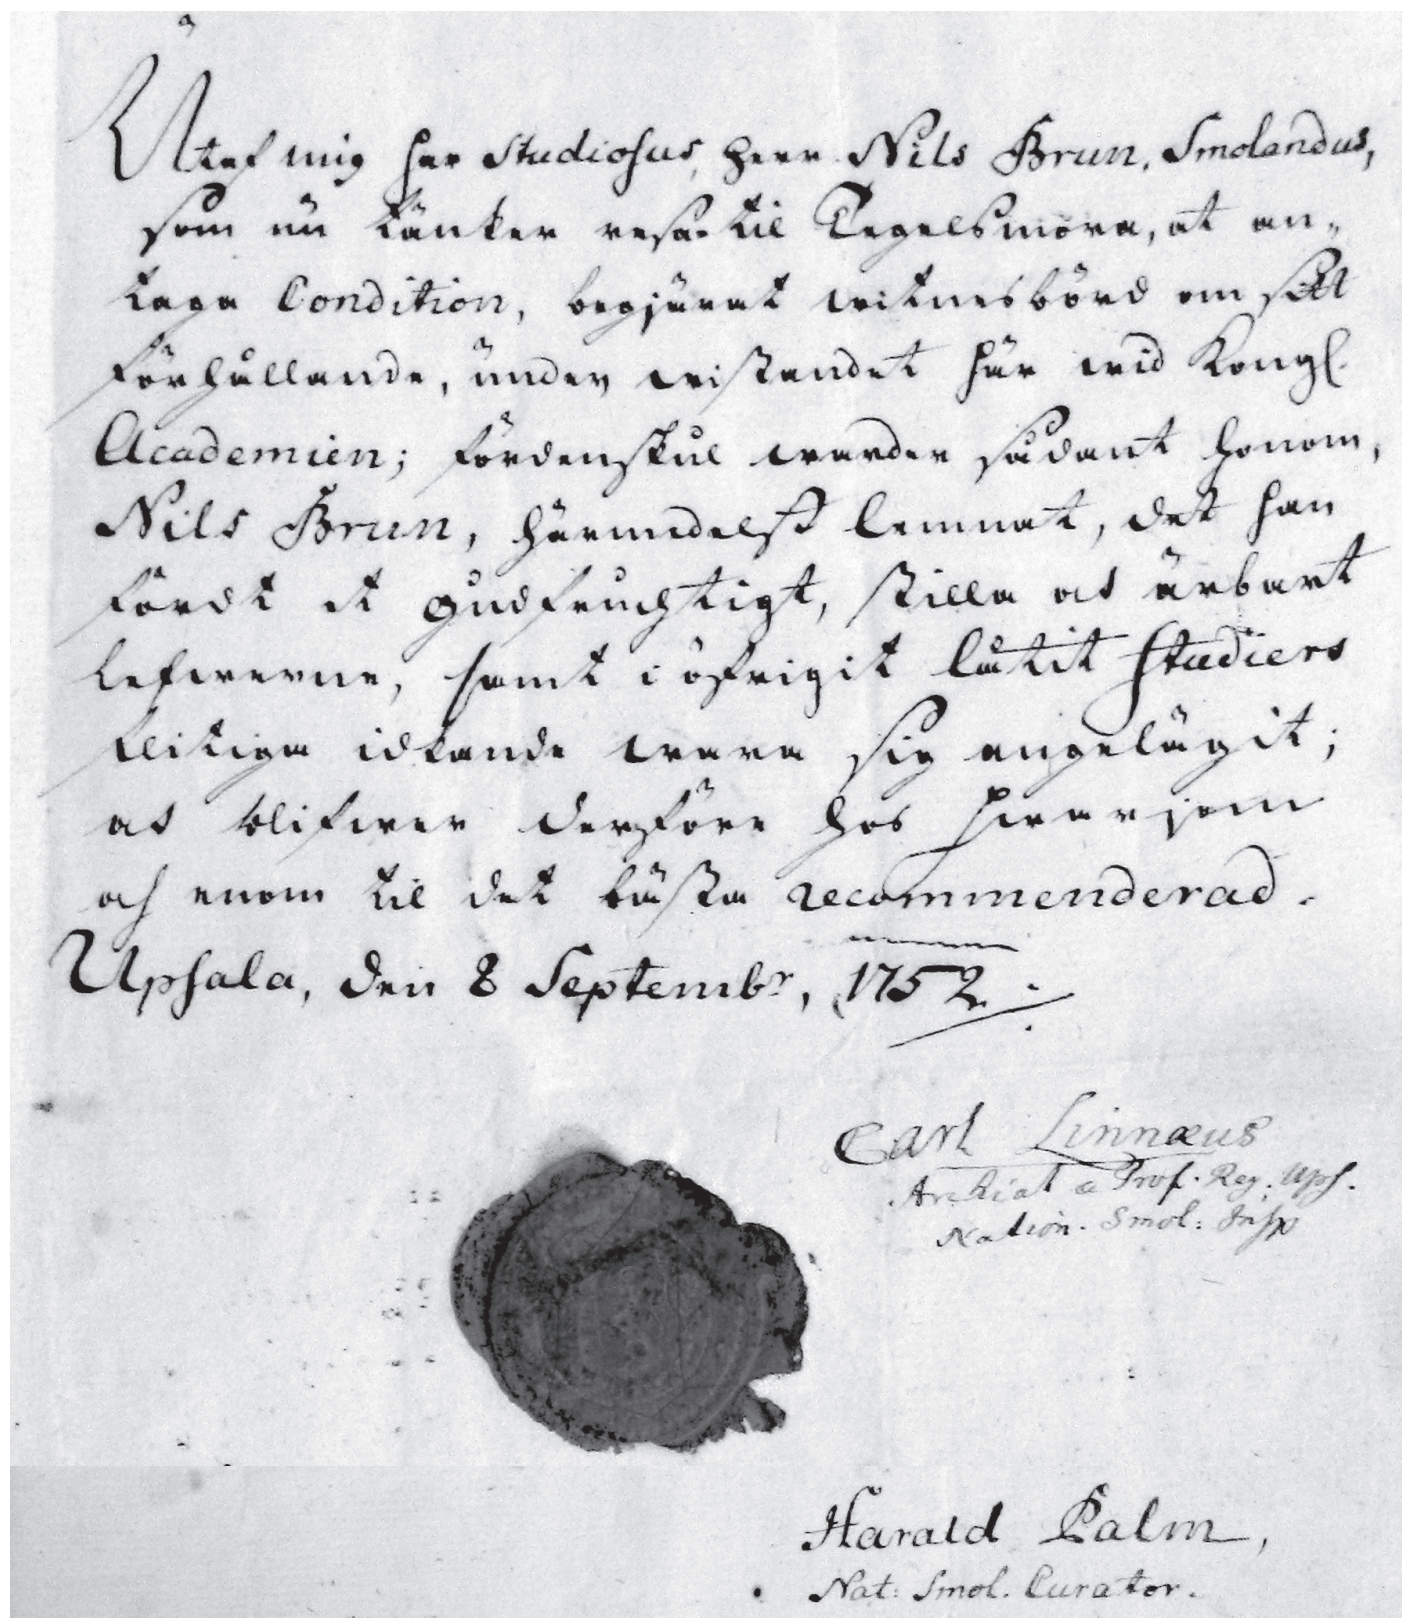 Utaf mig har Studiosus, Herr Nils Brun, Smolandus,
som nu tänker resa til Tegelsmora, at an„
taga Condition, begjärat witnesbörd om sitt
förhållande, under wistandet här wid Kongl.
Academien; fördenskul warder sådant honom,
Nils Brun, härmedelst lemnat, det han
fördt et gudfruchtigt, stilla och ärbart
lefwerne, samt i öfrigit låtit Studiers
flitiga idkande wara sig angelägit;
och blifwer derföre hos hwarjom
och enom til det bästa recommenderad.
Upsala, den 8 Septembr, 1752.
Carl Linnæus
Archiat & Prof. Reg. Ups.
Nation. Smol: Insp
Harald Palm,
Nat: Smol. Curator.